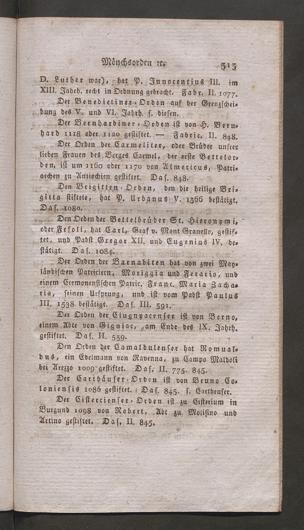 Mönchsorden ꝛc. 515
D. Luther war), hat P. Innocentius III. im
XIII. Jahrh. recht in Ordnung gebracht. Fabr. II. 1077.
Der Benedictiner-Orden auf der Grenzschei-
dung des V. und VI. Jahrh. s. diesen.
Der Bernhardiner-Orden ist von H. Bern-
hard 1118 oder 1120 gestiftet. — Fabric. II. 848.
Der Orden der Carmeliter, oder Brüder unsrer
lieben Frauen des Berges Carmel, der erste Bettelor-
den, ist um 1160 oder 1170 von Almericus, Patri-
archen zu Antiochien gestiftet. Das. 848.
Den Brigitten-Orden, den die heilige Bri-
gitta stiftete, hat P. Urbanus V. 1366 bestätigt.
Das. 1080.
Den Orden der Bettelbrüder St. Hieronymi,
oder Fesoli, hat Carl, Graf v. Mont Granelle, gestif-
tet, und Pabst Gregor XII. und Eugenius IV. be-
stätigt. Das. 1084.
Der Orden der Barnabiten hat von zwei May-
ländischen Patriciern, Moriggia und Ferario, und
einem Cremonensischen Patric. Franc. Maria Zacha-
ria, seinen Ursprung, und ist vom Pabst Paulus
III. 1538 bestätigt. Das. III. 591.
Der Orden der Clugnyacenser ist von Berno,
einem Abte von Gigniac, am Ende des IX. Jahrh.
gestiftet. Das. II. 539.
Den Orden der Camaldulenser hat Romual-
dus, ein Edelmann von Ravenna, zu Campo Maldoli
bei Arezzo 1009 gestiftet. Das. II. 775. 845.
Der Carthäuser-Orden ist von Bruno Co-
loniensis 1086 gestiftet. Das. 845. s. Carthenser.
Der Cistercienser-Orden ist zu Cisterium in
Burgund 1098 von Robert, Abt zu Molismo und
Artino gestiftet. Das. II. 845.